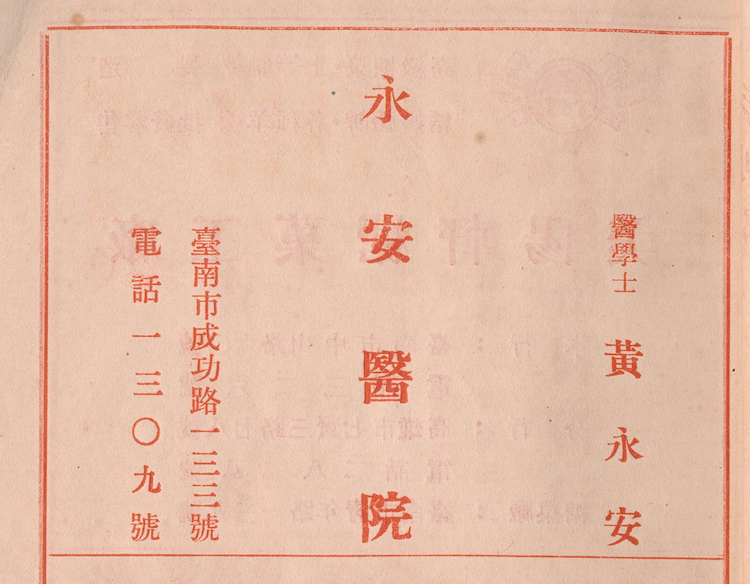 醫學士 黃永安
永安醫院
臺南市成功路一三三號
電話一三〇九號